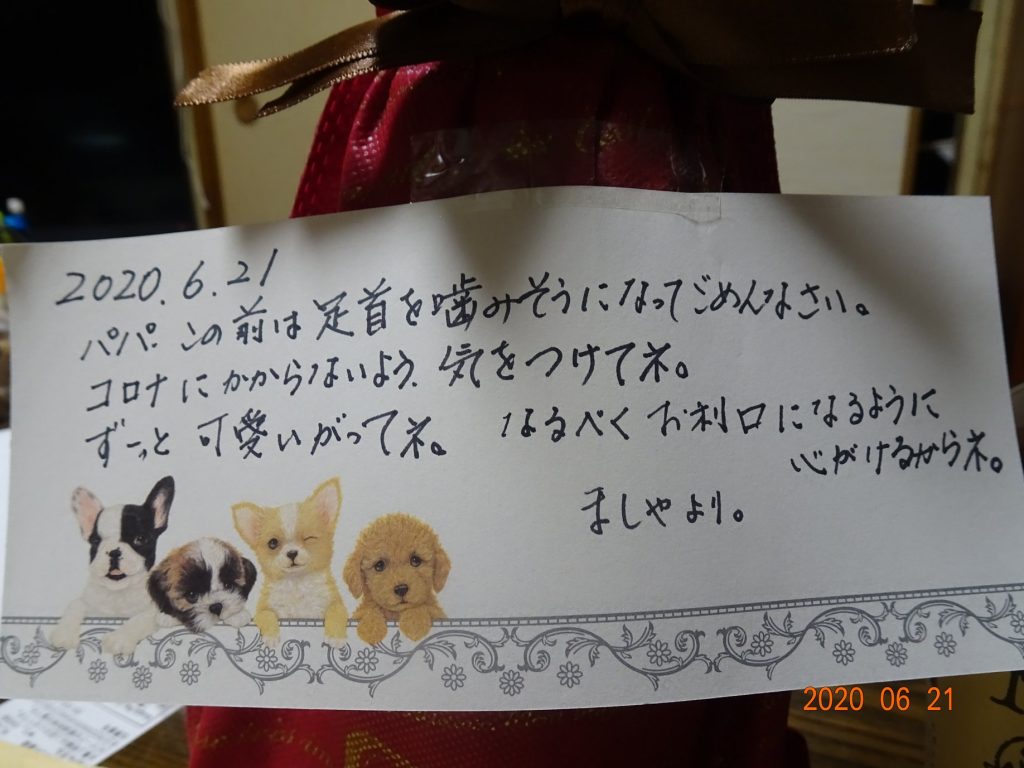 2020.6.21
パパ、この前は足首を噛みそうになってごめんなさい。
コロナにかからないよう、気をつけてネ。
ずーっと可愛いがってネ。 なるべくお利口になるように
心がけるからネ。
ましゃより。
2020 06 21